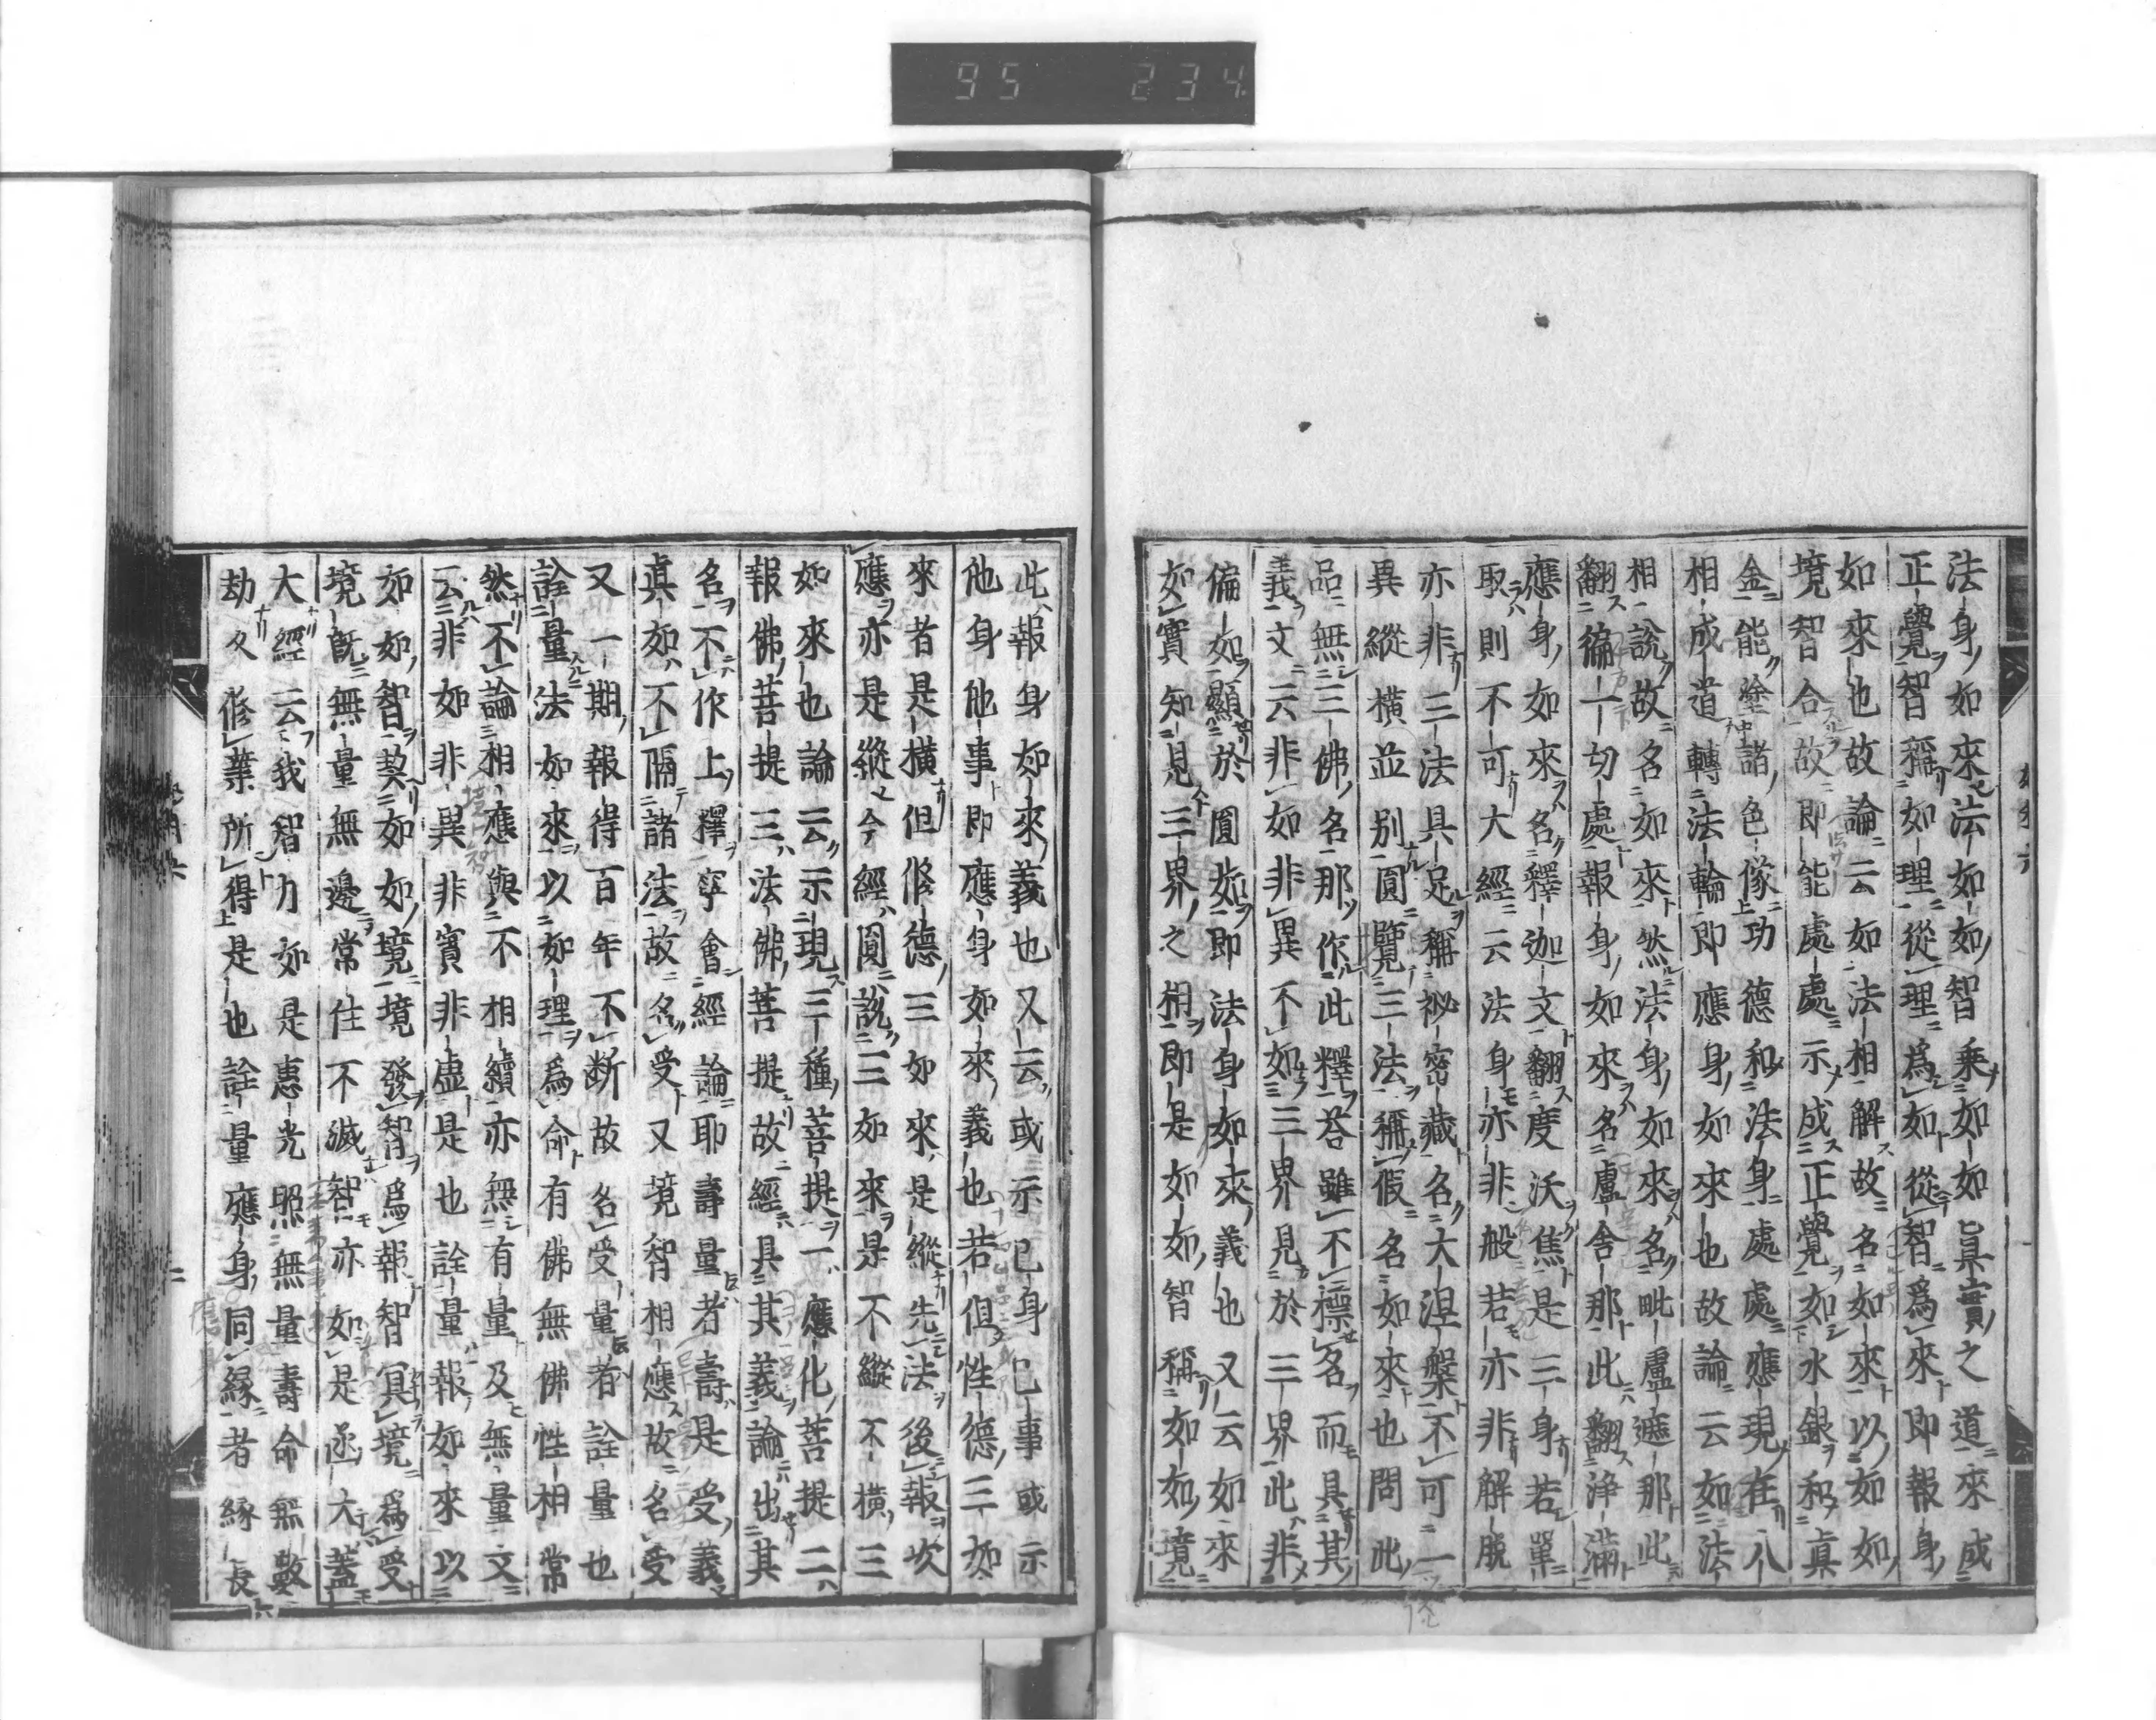 95 234
法身如來法如如智乗如如眞實之道來成
正覺智稱如理從理爲如從智爲來即報身
如來也故論云如法相解故名如來以如如
境智合故即能處處示成正覺如水銀和眞
金能塗諸色像功德和法身處處應現在八
相成道轉法輪即應身如來也故論云如法
相說故名如來然法身如來名毗盧遮那此
翻徧一切處報身如來名盧舎那此翻淨滿
應身如來名釋迦文翻度沃焦是三身若單
取則不可大經云法身亦非般若亦非解脫
亦非三法具足稱祕密藏名大涅槃不可一
異縱橫並別圓覽三法稱假名如來也問此
品無三佛名那作此釋荅雖不標名而具其
義文云非如非異不如三界見於三界此非
偏如顯於圓如即法身如來義也又云如來
如實知見三界之相即是如如智稱如如境
此報身如來義也又云或示已身已事或示
他身他事即應身如來義也若但性德三如
來者是橫但修德三如來是縱先法後報次
應亦是縱今經圓說三如來是不縱不橫三
如來也論云示現三種菩提一應化菩提二
報佛菩提三法佛菩提故經具其義論出其
名不作上釋寧會經論耶壽量者壽是受義
眞如不隔諸法故名受又境智相應故名受
又一期報得百年不断故名受量者詮量也
詮量法如來以如理爲命有佛無佛性相常
然不論相應與不相續亦無有量及無量文
云非如非異非實非虛是也詮量報如來以
如如智契如如境境發智爲報智冥境爲受
境旣無量無邊常住不滅智亦如是函大蓋
大經云我智力如是惠光照無量壽命無數
劫久修業所得是也詮量應身同縁者縁長